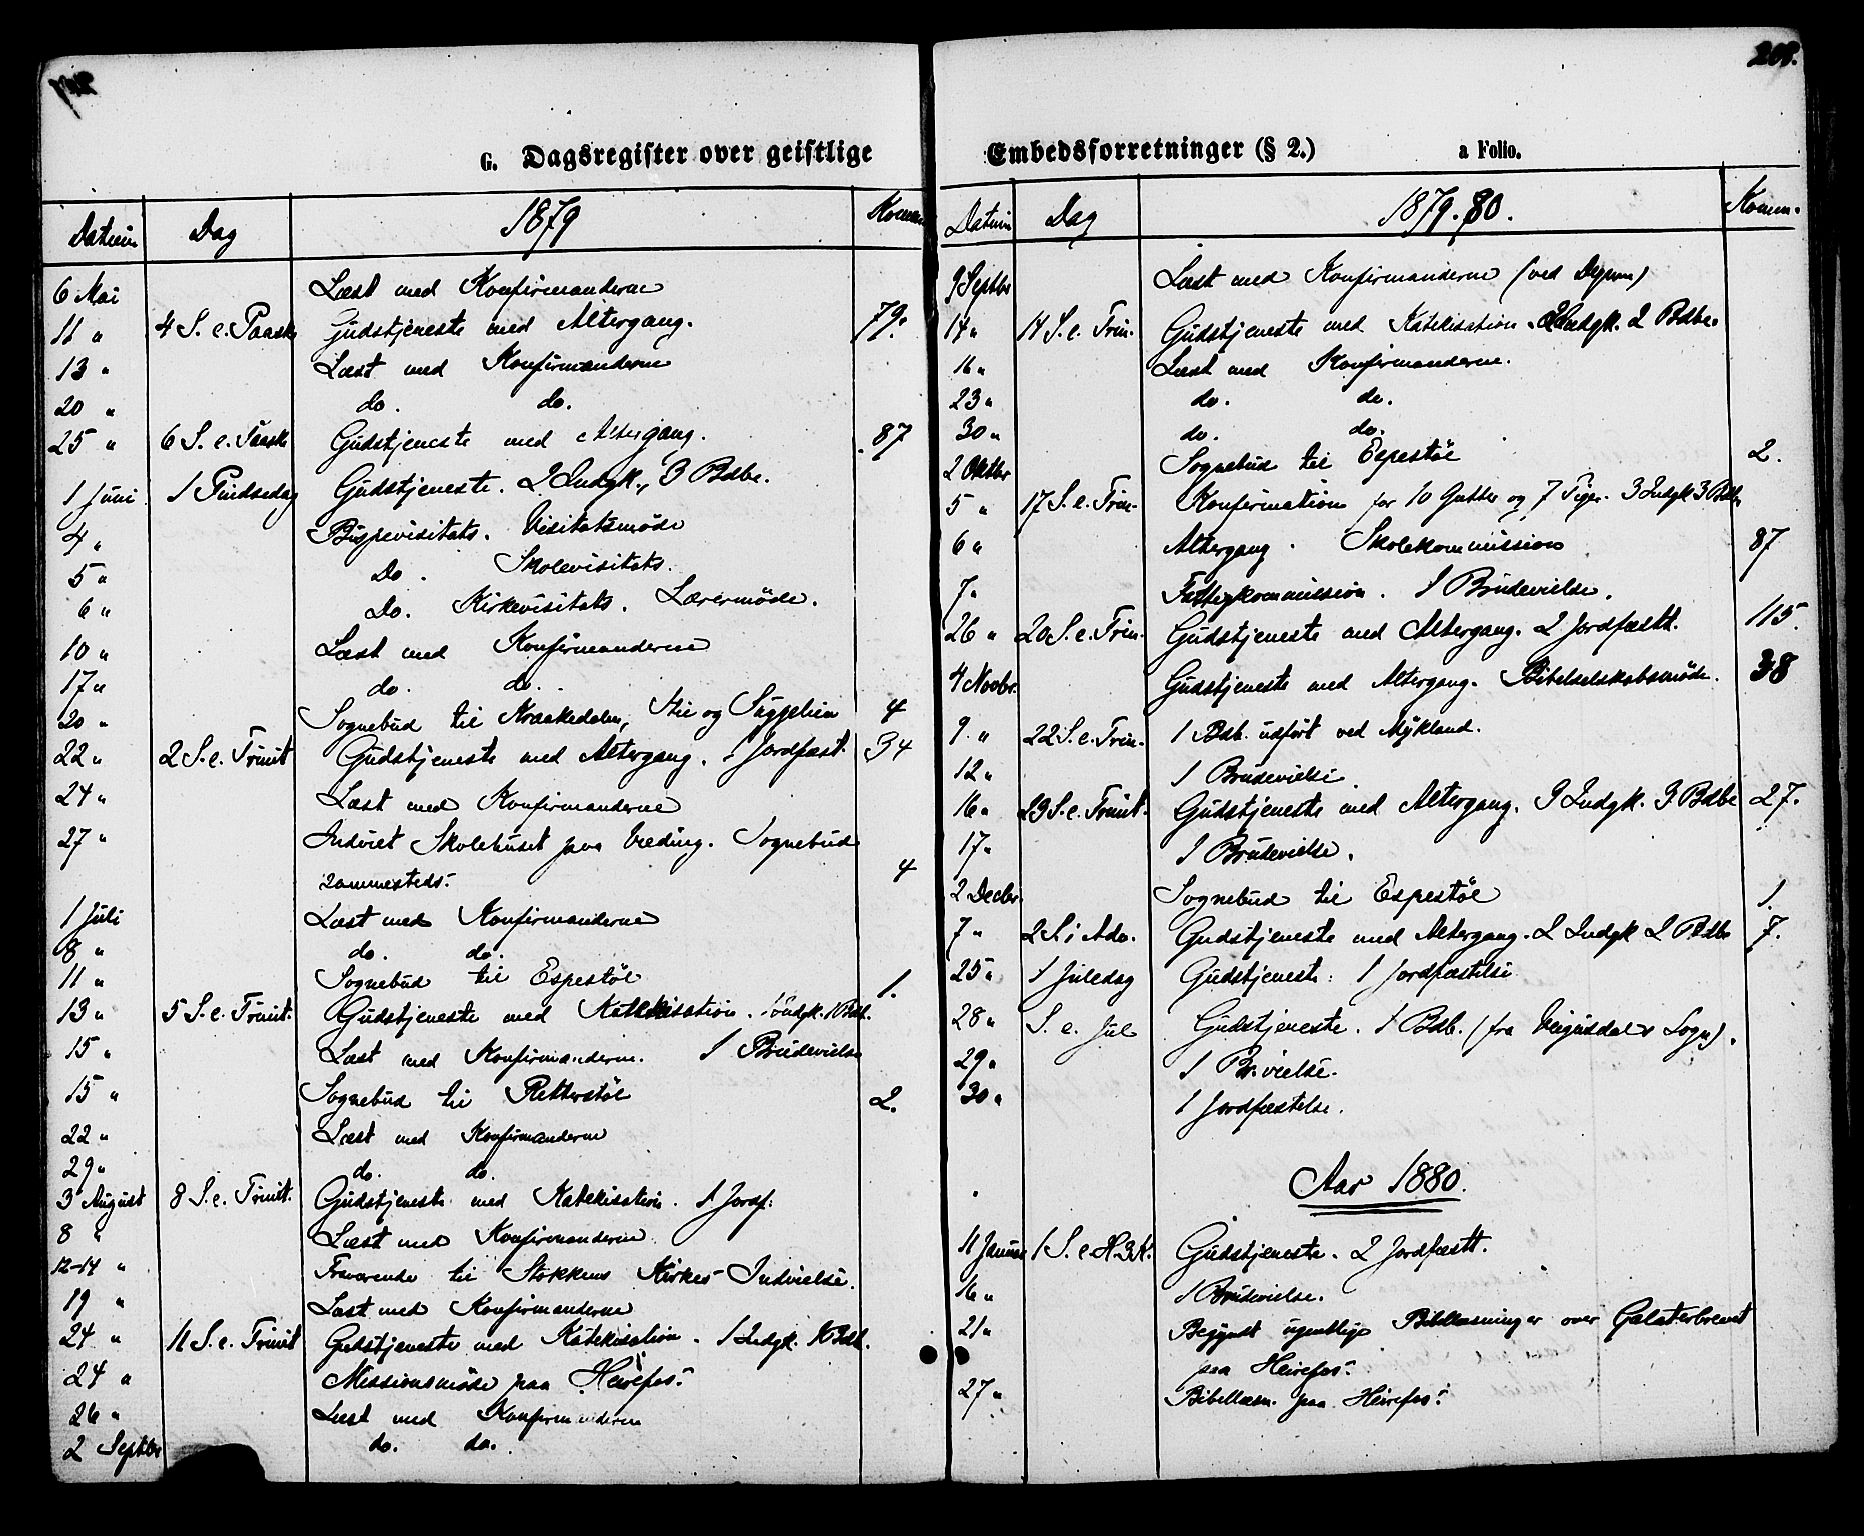 208.
G. Dagsregister over geistlige
Datum Dag 1879 Komm.
6 Mai Læst med Konfirmanderne
11 " 4 S. e. Paaske Gudstjeneste med Altergang. 79.
13 " Læst med Konfirmanderne
20 " do. do.
25 " 6 S. e. Paaske Gudstjeneste med Altergang. 87
1 Juni 1 Pindsedag Gudstjeneste. 2 Indgk., 3 Bdbe.
4 " Bispevisitats. Visitatsmøde
5 " Do. Skolevisitats.
6 " Do. Kirkevisitats. Lærermøde.
10 " Læst med Konfirmanderne
17 " do. do.
20 " Sognebud til Kraakedalen, Stie og 4
22 " 2 S. e. Trinit Gudstjeneste med Altergang. 1 Jordfæst. 34
24 " Læst med Konfirmanderne
27 " Indviet Skolehuset paa Væding. Sognebud
sammesteds. 4
1 Juli Læst med Konfirmanderne
8 " do. do.
11 " Sognebud til Espestøl 1.
13 " 5 S. e. Trinit. Gudstjeneste med Katekisation. 1 Indgk. 1 Bdb.
15 " Læst med Konfirmanderne. 1 Brudevielse
15 " Sognebud til Retterstøl 2.
22 " Læst med Konfirmanderne
29 " do. do.
3 August 8 S. e. Trinit. Gudstjeneste med Katekisation. 1 Jordf.
8 " Læst med Konfirmanderne
12-14 " Fraværende til Stokkens Kirkes Indvielse.
19 " Læst med Konfirmanderne
24 " 11 S. e. Trinit Gudstjeneste med Katekisation. 1 Indgk. 1 Bdb.
24 " Missionsmøde paa Heirefos.
26 " Læst med Konfirmanderne
2 Septbr do. do.
Embedsforretninger (§ 2.) a Folio.
Datum Dag 1879.80. Komm.
9 Septbr Læst med Konfirmanderne (ved Degnen)
14 " 14 S. e. Trin. Gudstjeneste med Katekisation. 2 Indgk. 2 Bdbe.
16 " Læst med Konfirmanderne.
23 " do. do.
30 " do. do.
2 Oktbr Sognebud til Espestøl 2.
5 " 17 S. e. Trin. Konfirmation for 10 Gutter og 7 Piger. 3 Indgk 3 Bdb.
6 " Altergang. Skolekommission 87
7 " Fattigkommission. 1 Brudevielse.
26 " 20 S. e. Trin. Gudstjeneste med Altergang. 2 Jordfæstt. 115.
4 Novbr. Gudstjeneste med Altergang. Bibelselskabsmøde. 38
9. " 22 S. e. Trin. 1 Bdb. udført ved Mykland.
12 " 1 Brudevielse.
16 " 23 S. e. Trinit. Gudstjeneste med Altergang. 3 Indgk. 3 Bdbe 27.
17 " 1 Brudevielse.
2 Decbr. Sognebud til Espestøl 1.
7 " 2 S. i Adv. Gudstjeneste med Altergang. 2 Indgk 2 Bdbe 7.
25 " 1 Juledag Gudstjeneste: 1 Jordfæstelse
28 " S. e. Jul Gudstjeneste. 1 Bdb. (fra Vegusdals Sogn).
29 " 1 Br.vielse.
30 " 1 Jordfæstelse.
Aar 1880.
11 Januar 1 S. e H.3K. Gudstjeneste. 2 Jordfæstt.
16 " 1 Brudevielse.
21 " Begyndt ugentlige Bibellæsninger over Galaterbrevet
paa Heirefos.
27 " Bibellæsn. paa Heirefos.